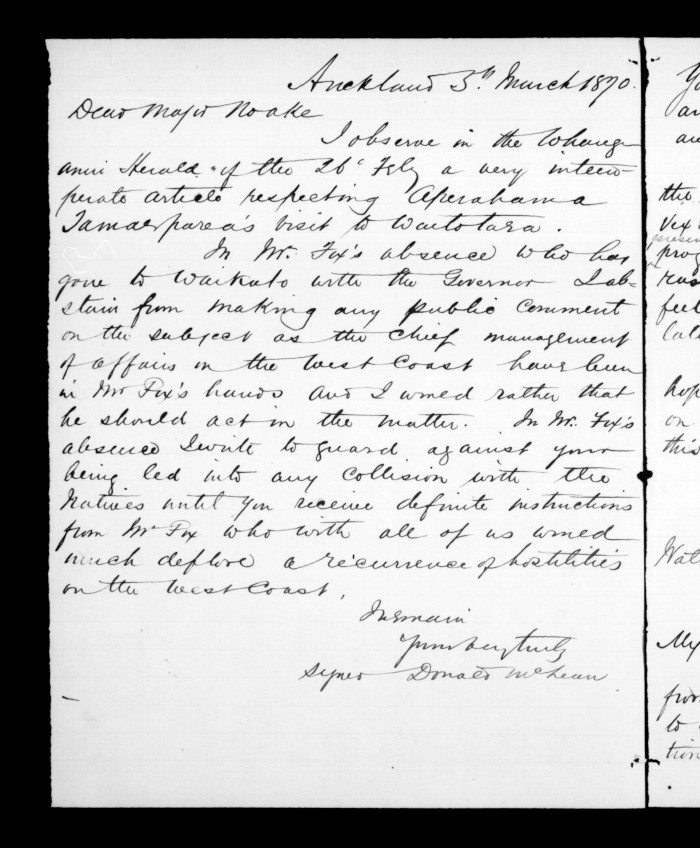 Auckland 3rd March 1870.
Dear Major Noake
I observe in the Whang-
anui Herald of the 26th Feby a very intem-
perate article respecting Aperahama
Tamaiparea's visit to Waitotara.
In Mr. Fox's absence who has
gone to Waikato with the Governor I ab-
stain from making any public comment
on the subject as the chief management
of affairs on the West Coast have been
in Mr Fox's hands and I would rather that
he should act in the matter. In Mr. Fox's
absence I write to guard against your
being led into any collision with the
Natives until you receive definite instructions
from Mr Fox who with all of us would
much deplore a recurrence of hostilities
on the West Coast.
I remain
Yours very truly
Signed Donald McLean
the
Vex
presen
prog
feel
hope
on
this
My
from
to
tion